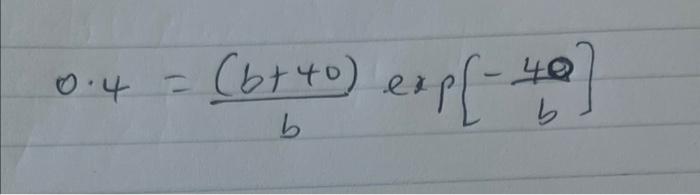 0.4 = (b+40)/b exp[-40/b]